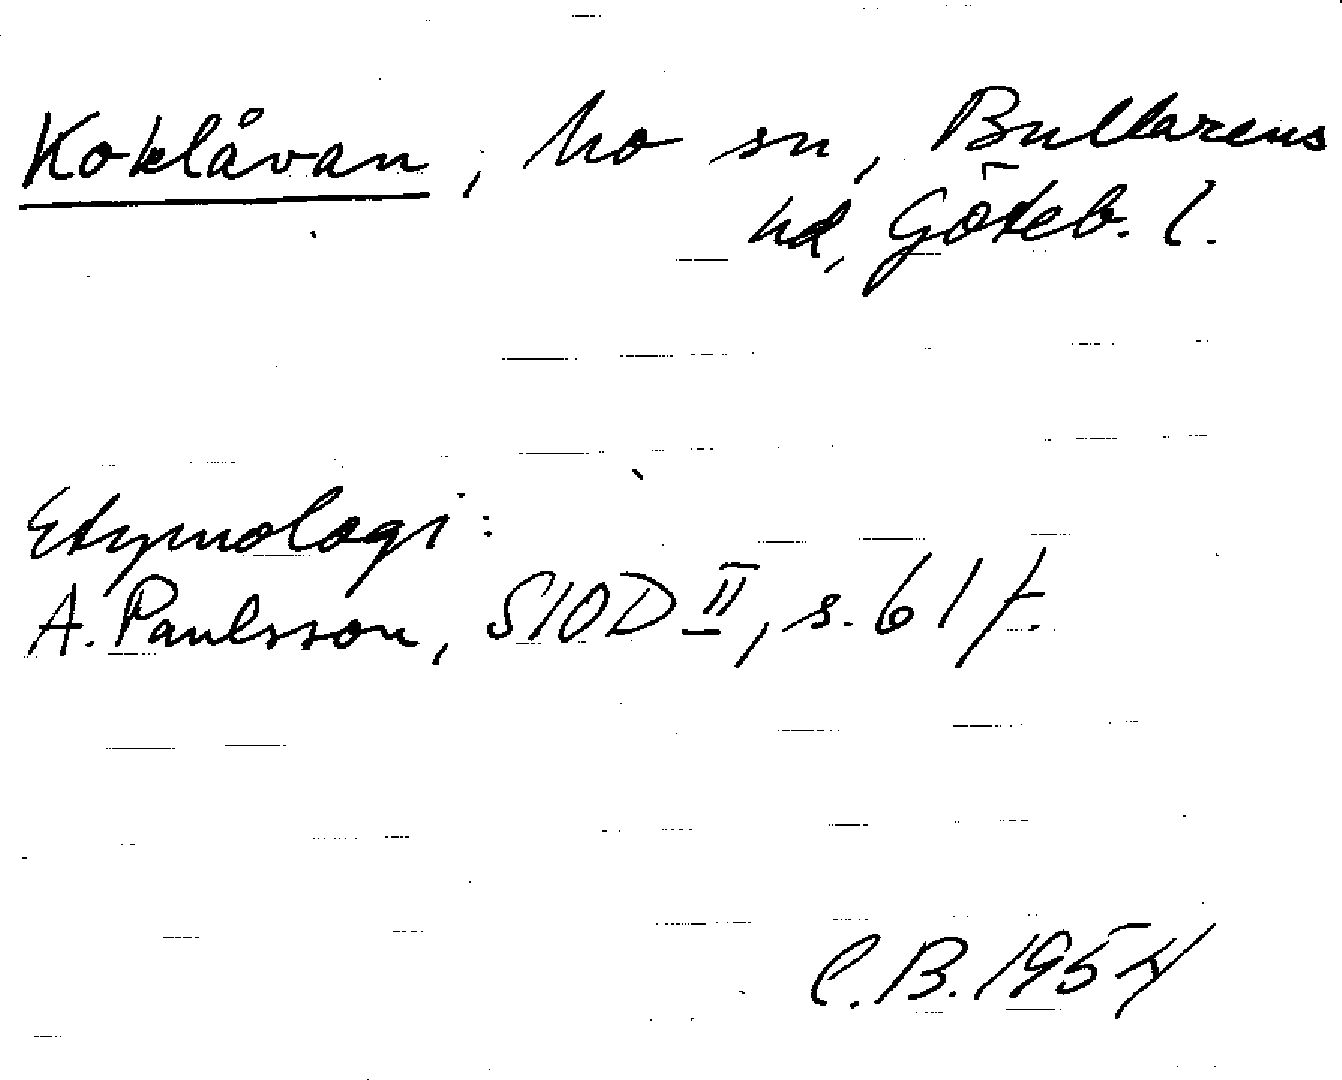 Koklåvan, Mo sn, Bullarens
hd, Göteb. l.
Etymologi:
A. Paulsson, SIOD II, s. 61 f.
C.B. 1954